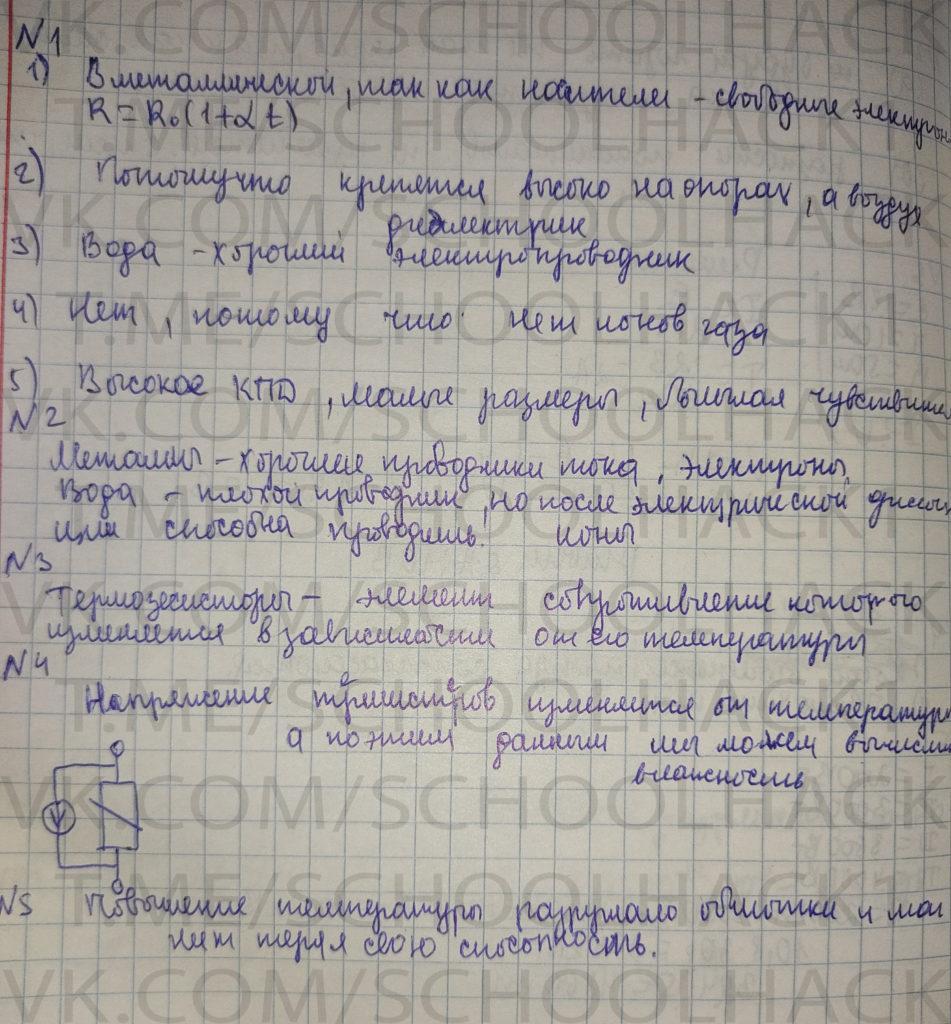 N1
1) В металлической, так как носители - свободные электрон
R = R₀(1+αt)
2) Потомучто крепятся высоко на опорах, а воздух
диэлектрик
3) Вода - хороший электропроводник
4) Нет, потому что нет ионов газа
5) Высокое КПД, малые размеры, большая чувствите
N2
Металлы - хорошие проводники тока, электроны,
Вода - плохой проводник, но после электрической диссоц
ции способна проводить. ионы
N3
Терморезисторы - элемент сопротивление которого
изменяется в зависимости от его температуры
N4
Напряжение термисторов изменяется от температур
а по этим данным мы можем вычисли
влажность
N5 Повышение температуры разрушало обмотки и маг
нит терял свою способность.
VK.COM/SCHOOLHACK
T.ME/SCHOOLHACK1
VK.COM/SCHOOLHACK
T.ME/SCHOOLHACK1
VK.COM/SCHOOLHACK
T.ME/SCHOOLHACK1
VK.COM/SCHOOLHACK
T.ME/SCHOOLHACK1
VK.COM/SCHOOLHACK
T.ME/SCHOOLHACK1
VK.COM/SCHOOLHACK